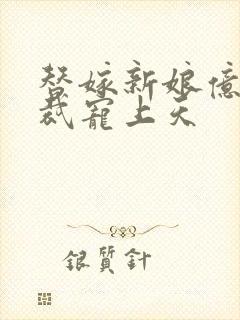 替嫁新娘億
裁寵上天
銀質針